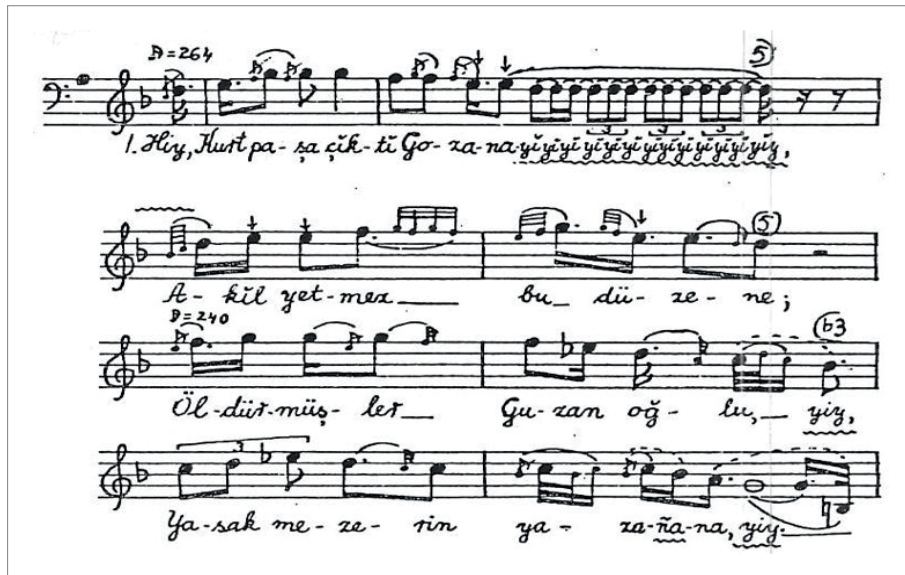 ♪=264
5
1. Hiy, Kurt pa-şa çĭk-tĭ Go-za-na-yĭyĭyĭ yĭyĭyĭyĭyĭyĭ yĭyĭyĭyiy,
5
A-kĭl yet-mez bu dü-ze-ne;
♪=240
b3
Öl-dür-müş-ler Gu-zan oğ-lu, yiy,
3
Ya-sak me-ze-rin ya-za-ña-na, yiy.